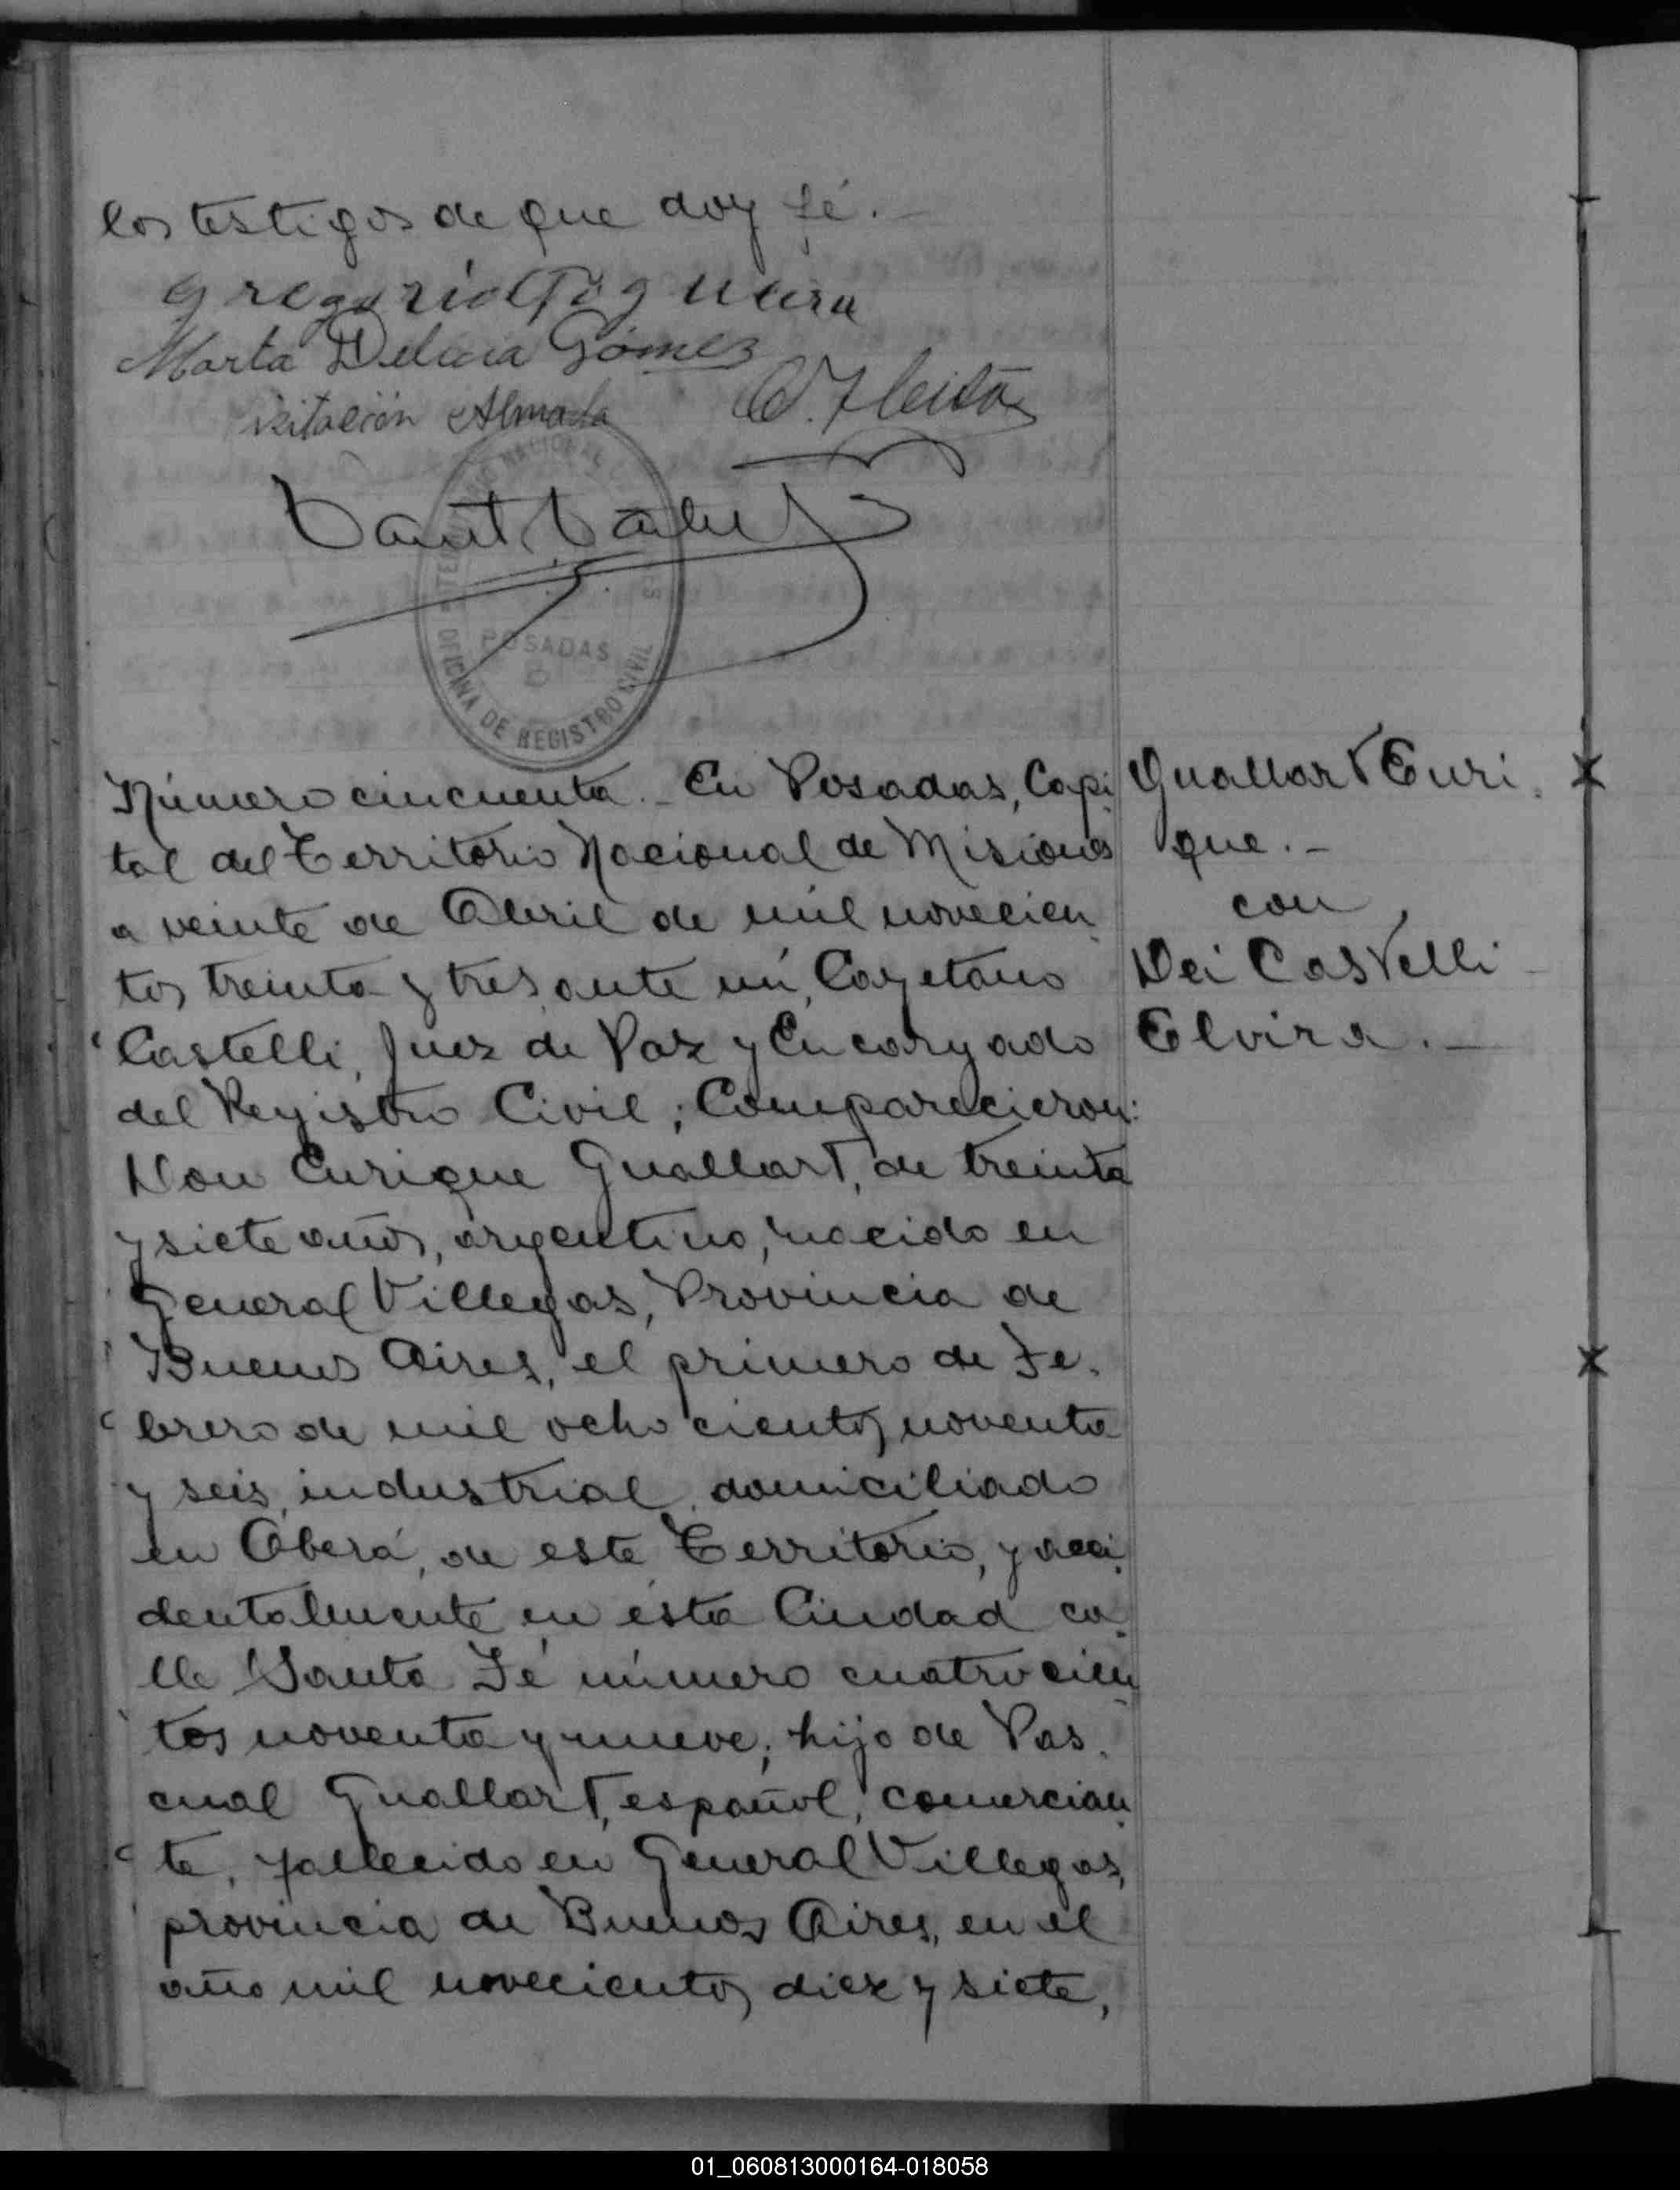 los testigos de que doy fé.—
Gregorio
Marta Delicia Gómez
Visitación Almada
OFICINA DE REGISTRO CIVIL
POSADAS
Número cincuenta.- En Posadas, Capi-
tal del Territorio Nacional de Misiones
a veinte de Abril de mil novecien-
tos treinta y tres ante mí, Cayetano
Castelli, Juez de Paz y Encargado
del Registro Civil; Comparecieron:
Don Enrique Guallart, de treinta
y siete años, argentino, nacido en
General Villegas, Provincia de
Buenos Aires, el primero de Fe-
brero de mil ochocientos noventa
y seis, industrial, domiciliado
en Oberá, de este Territorio, y acci-
dentalmente en ésta Ciudad ca-
lle Santa Fé número cuatrocien-
tos noventa y nueve; hijo de Pas-
cual Guallart, español, comercian-
te, fallecido en General Villegas,
provincia de Buenos Aires, en el
año mil novecientos diez y siete,
Guallart Enri-
que.-
con
Dei Castelli
Elvira.—
01_060813000164-018058